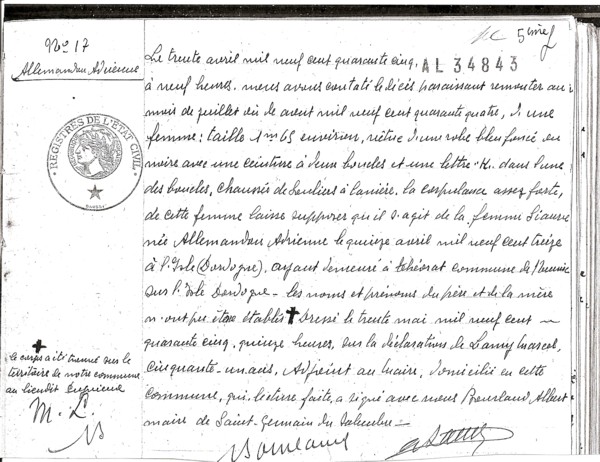 No 17
Allemandou Adrienne
AL 34843
Le trente avril mil neuf cent quarante cinq,
à neuf heures. nous avons contaté le décès paraissant remonter au
mois de juillet ou de aout mil neuf cent quarante quatre, d'une
femme: taille 1m65 environ, vêtue d'une robe bleu foncé ou
noire avec une ceinture à deux boucles et une lettre "K" dans l'une
des boucles, chaussée de souliers à laniére. la corpulance assez forte,
de cette femme laisse supposer qu'il s'agit de la femme
née Allemandou Adrienne le quinze avril mil neuf cent treize
à l'Isle (Dordogne), ayant demeuré à commune de
sur l'Isle Dordogne - les noms et prénoms du père et de la mère
n'ont pu être établis ✝ Dressé le trente mai mil neuf cent
quarante cinq, quinze heures, sur la déclaration de Lamy Marcel,
cinquante-un ans, Adjoint au maire, domicilié en cette
commune, qui, lecture faite, a signé avec nous Bourland Albert
maire de Saint-Germain du Salembre -
REGISTRES DE L'ETAT CIVIL
✝
le corps a été trouvé sur le
territoire de notre commune
au lieudit
M. L.